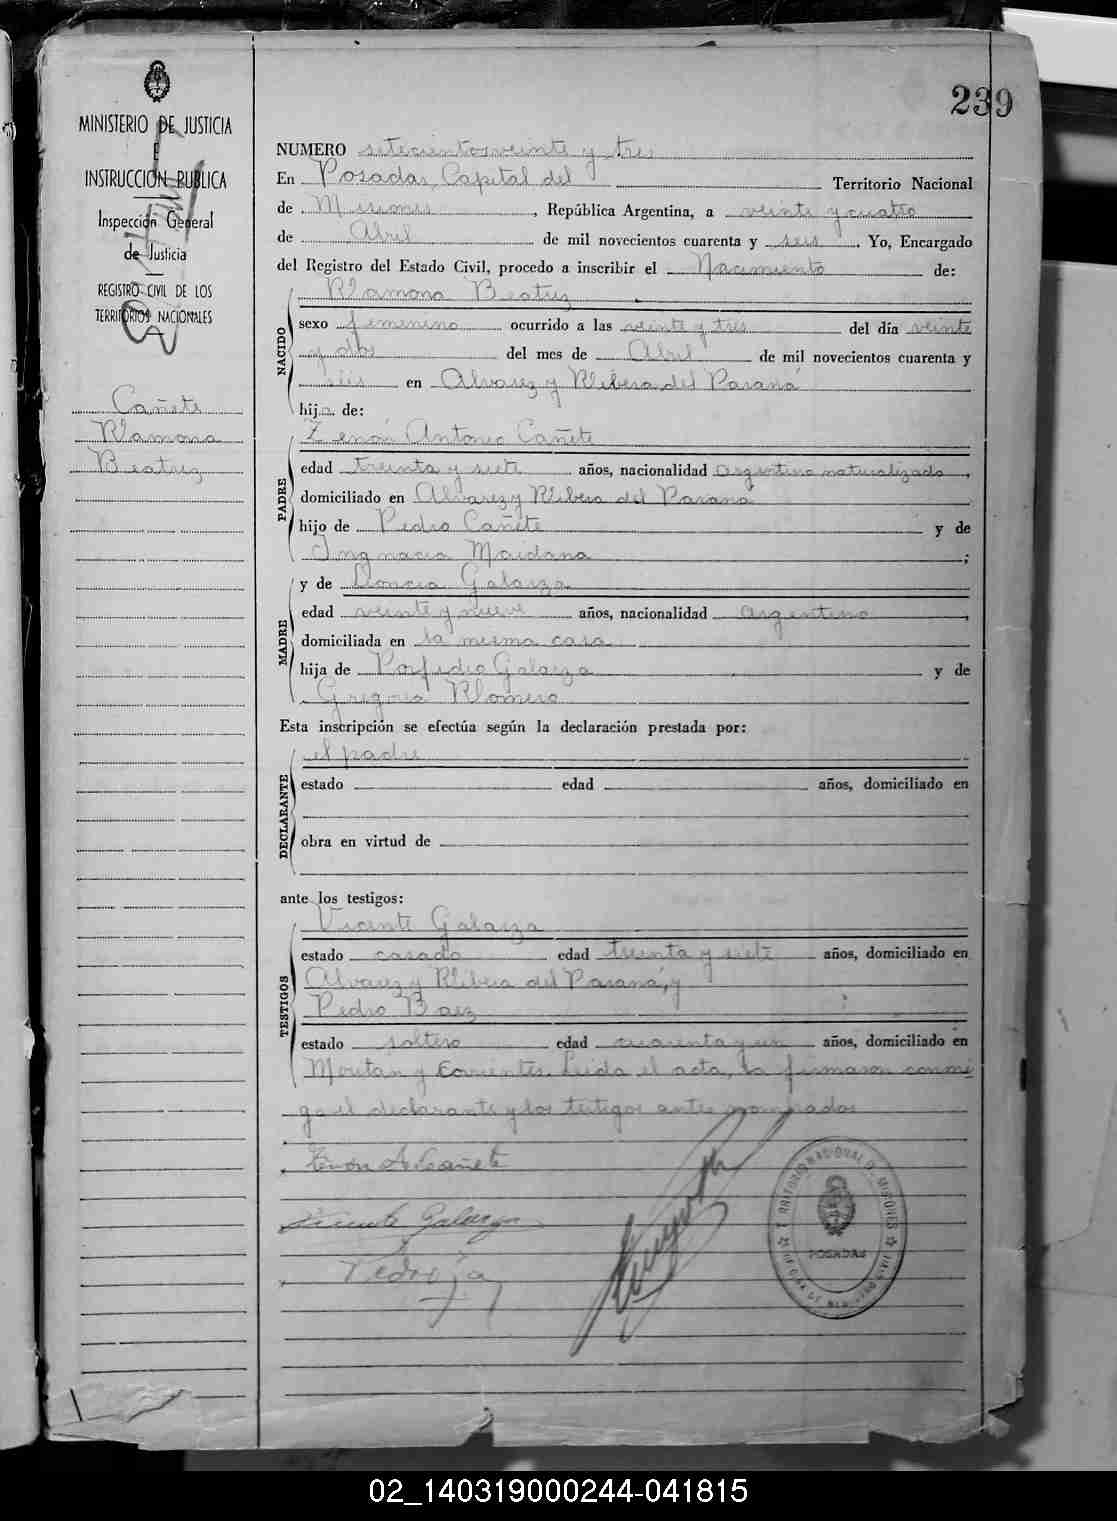 239
MINISTERIO DE JUSTICIA
E
INSTRUCCION PUBLICA
Inspección General
de Justicia
REGISTRO CIVIL DE LOS
TERRITORIOS NACIONALES
Cañete
Ramona
Beatriz
NUMERO setecientos veinte y tres
En Posadas, Capital del Territorio Nacional
de Misiones, República Argentina, a veinte y cuatro
de Abril de mil novecientos cuarenta y seis. Yo, Encargado
del Registro del Estado Civil, procedo a inscribir el Nacimiento de:
NACIDO
Ramona Beatriz
sexo femenino ocurrido a las veinte y tres del día veinte
y dos del mes de Abril de mil novecientos cuarenta y
seis en Alvarez y Ribera del Paraná
hija de:
PADRE
Zenón Antonio Cañete
edad treinta y siete años, nacionalidad argentino naturalizado,
domiciliado en Alvarez y Ribera del Paraná
hijo de Pedro Cañete y de
Ingnacia Maidana;
MADRE
y de Leoncia Galarza
edad veinte y nueve años, nacionalidad argentina,
domiciliada en la misma casa
hija de Porfidio Galarza y de
Gregoria Romero
Esta inscripción se efectúa según la declaración prestada por:
DECLARANTE
el padre
estado edad años, domiciliado en
obra en virtud de
ante los testigos:
TESTIGOS
Vicente Galarza
estado casado edad treinta y siete años, domiciliado en
Alvarez y Ribera del Paraná, y
Pedro Baez
estado soltero edad cuarenta y un años, domiciliado en
y Corrientes. Leida el acta, la firmaron conmi
go el declarante y los testigos antes nombrados
Zenón A. Cañete
Vicente Galarza
Pedro
TERRITORIO NACIONAL D. MISIONES
POSADAS
02_140319000244-041815